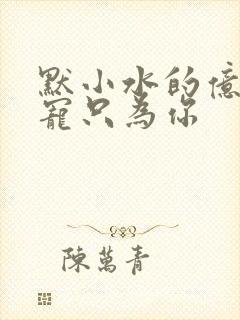 默小水的億
寵只為你
陳萬青